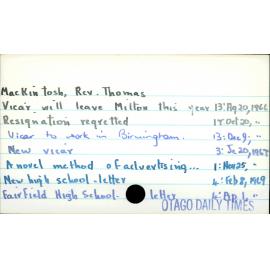 MacKintosh, Rev. Thomas
Vicar will leave Milton this year 13: Ag 20, 1966
Resignation regretted 17: Oct 20, "
Vicar to work in Birmingham. 13: Dec 9, "
New vicar 3: Je 20, 1967
A novel method of advertising... 1: Nov 25, "
New high school - letter 4: Feb 8, 1969
Fairfield High School - letter 4: Ap 1, "
OTAGO DAILY TIMES